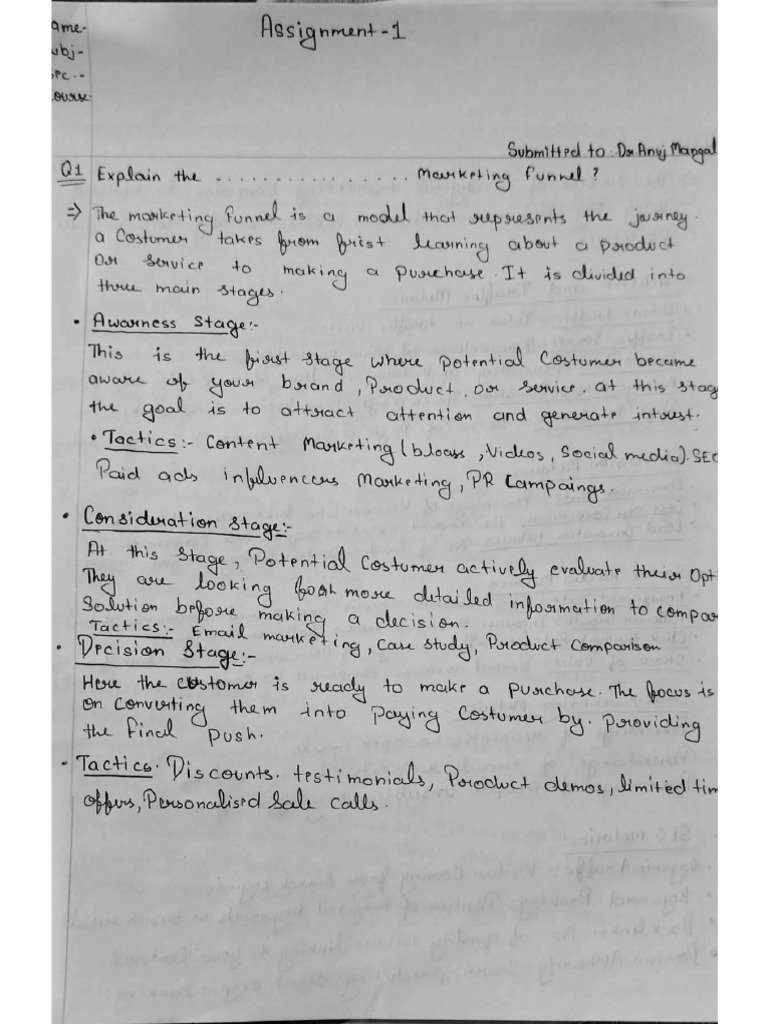 Assignment-1
ame-
ubj-
pc.-
ourse.
Submitted to Dr Anuj Mangal
Q1 Explain the ................. Marketing funnel?
⇒ The marketing funnel is a model that represents the journey.
a Costumer takes from frist learning about a product
Or service to making a purchase. It is divided into
three main stages.
• Awarness Stage:-
This is the first stage where potential Costumer became
aware of your brand, Product, or service. at this stag
the goal is to attract attention and generate intrest.
• Tactics:- Content Marketing (bloass, Videos, Social media). SEO
Paid ads influencers Marketing, PR Campaings.
• Consideration Stage:-
At this stage, Potential Costumer actively evaluate their Opti
They are looking for more detailed information to compar
Solution before making a decision.
Tactics:- Email marketing, Case study, Product Comparison
• Decision Stage:-
Here the customer is ready to make a purchase. The focus is
on Converting them into Paying Costumer by. Providing
the final push.
• Tactics. Discounts. testimonials, Product demos, limited tim
offers, Personalised Sale calls.